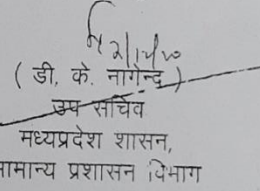 ( डी. के. नागेन्द्र )
उप सचिव
मध्यप्रदेश शासन,
सामान्य प्रशासन विभाग